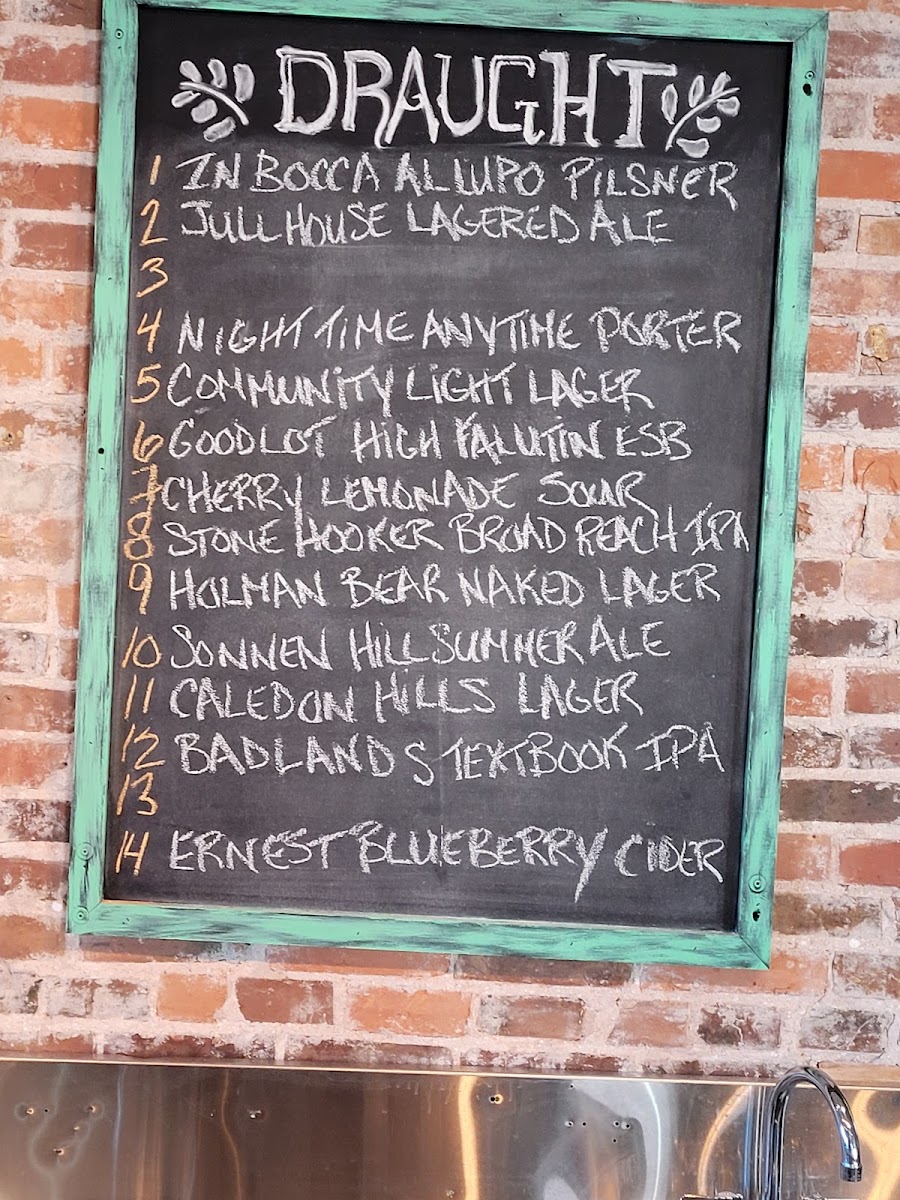 DRAUGHT
1 IN BOCCA AL LUPO PILSNER
2 JULL HOUSE LAGERED ALE
3
4 NIGHT TIME ANYTIME PORTER
5 COMMUNITY LIGHT LAGER
6 GOODLOT HIGH FALUTIN ESB
7 CHERRY LEMONADE SOUR
8 STONE HOOKER BROAD REACH IPA
9 HOLMAN BEAR NAKED LAGER
10 SONNEN HILL SUMMER ALE
11 CALEDON HILLS LAGER
12 BADLANDS TEXTBOOK IPA
13
14 ERNEST BLUEBERRY CIDER